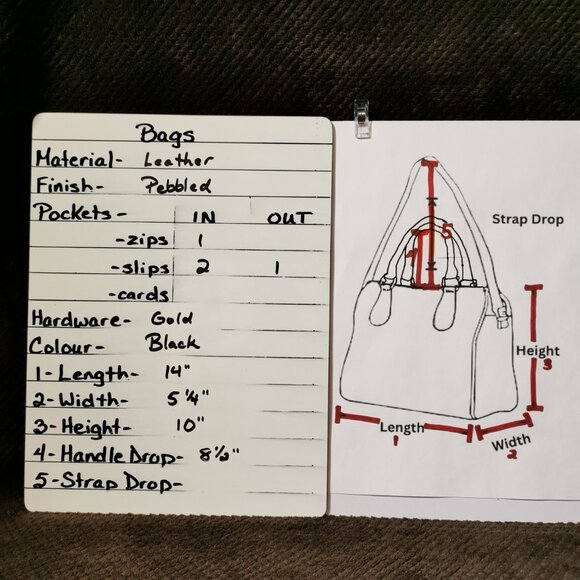 Bags
Material- Leather
Finish- Pebbled
Pockets- IN OUT
-zips 1
-slips 2 1
-cards
Hardware- Gold
Colour- Black
1-Length- 14"
2-Width- 5 1/4"
3-Height- 10"
4-Handle Drop- 8 1/2"
5-Strap Drop-
Strap Drop
5
4
Height
3
Length
1
Width
2